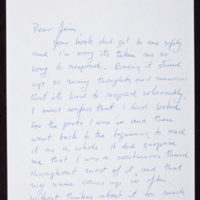 Dear Jim,
Your book did get to me safely
and I'm sorry it's taken me so
long to respond. Reading it stirred
up so many thoughts and memories
that it's hard to respond coherently.
I must confess that I first looked
for the parts I was in and then
went back to the beginning to read
it as a whole. It did surprise
me that I was a continuous thread
throughout most of it, and that
my name comes up so often.
Without thinking about it too much